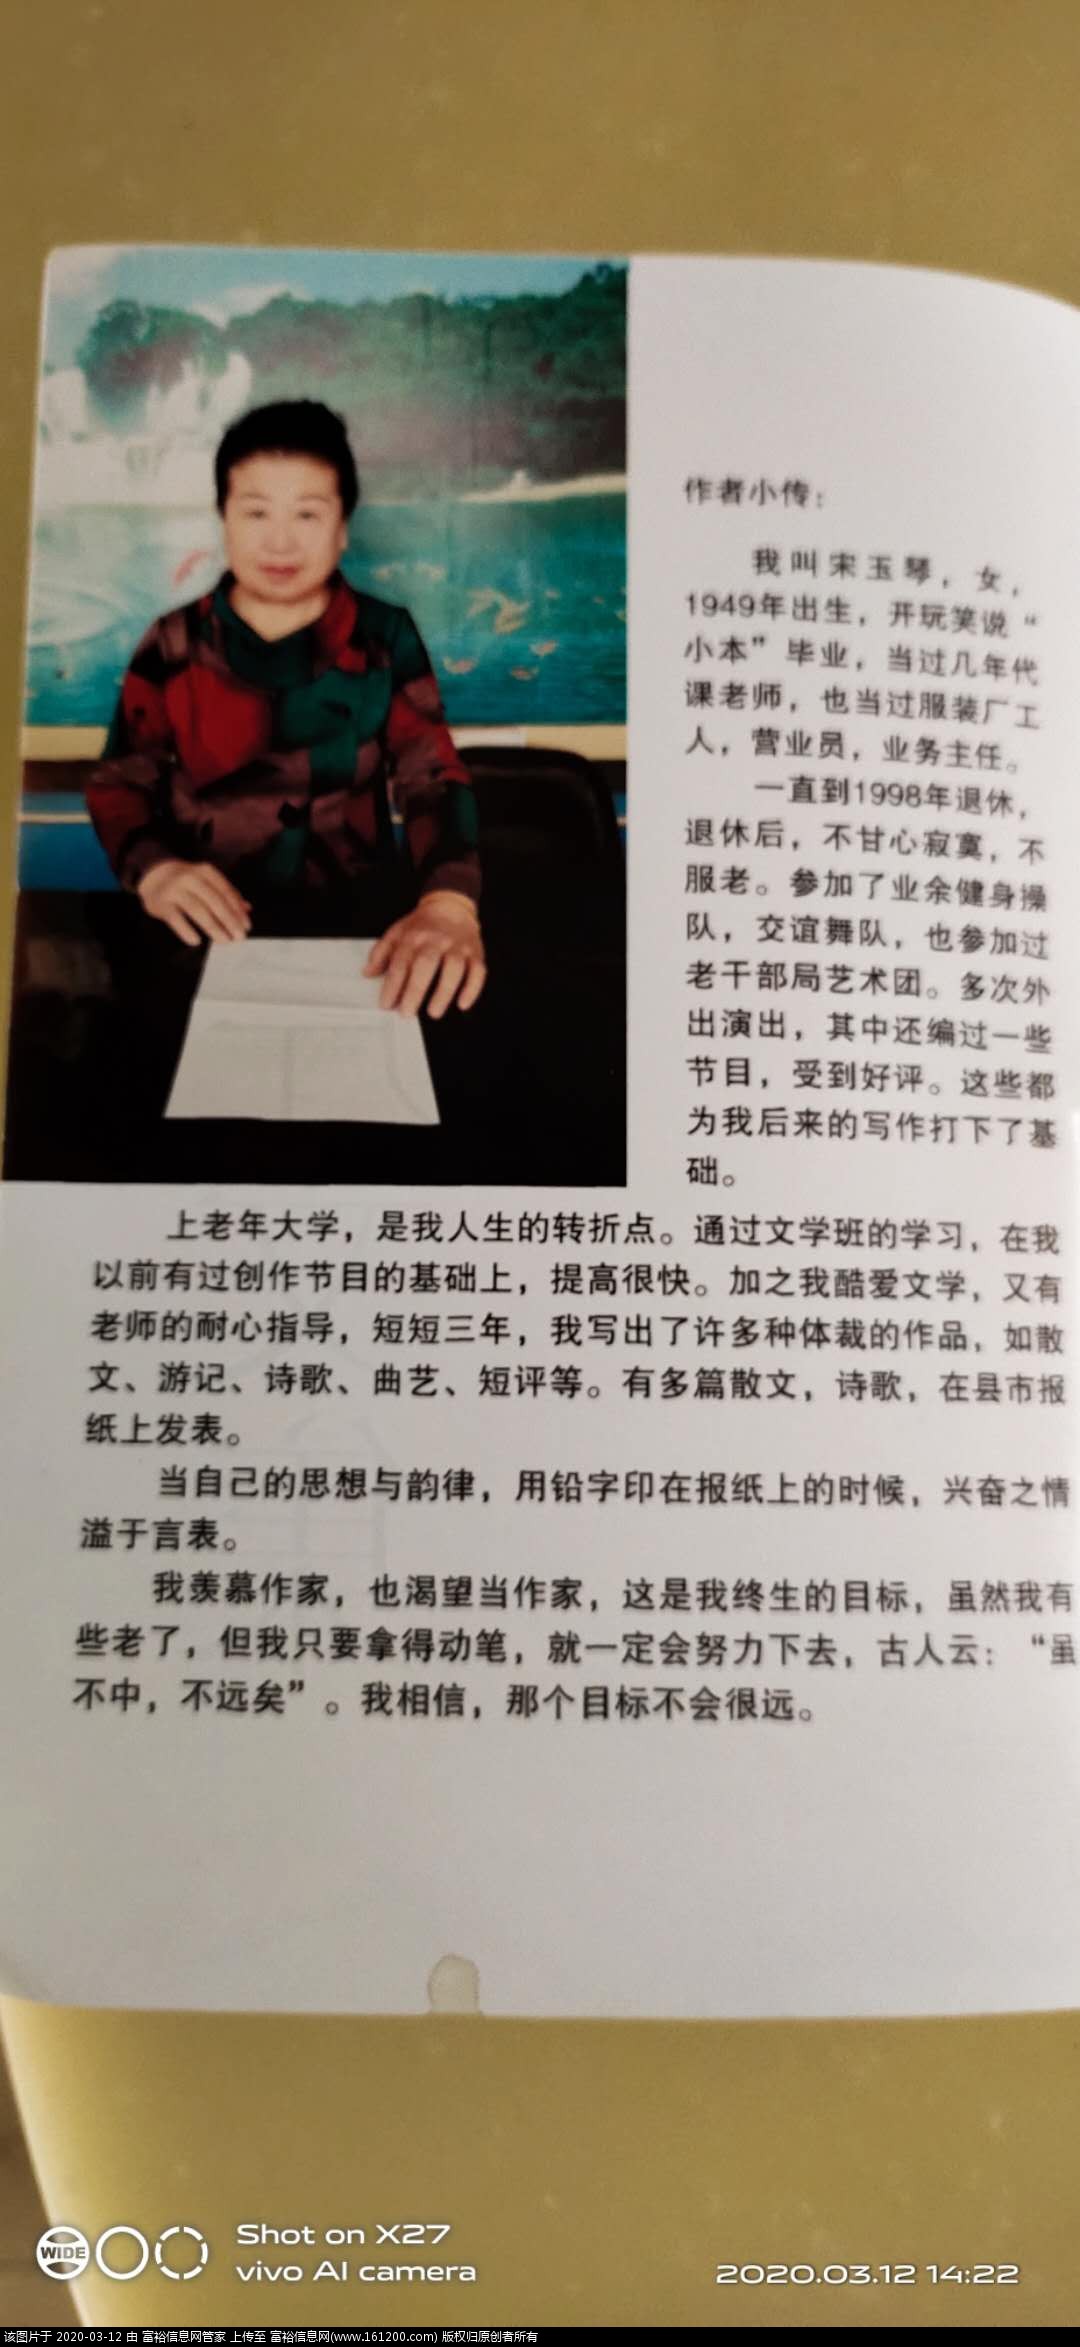 作者小传：
我叫宋玉琴，女，
1949年出生，开玩笑说“
小本”毕业，当过几年代
课老师，也当过服装厂工
人，营业员，业务主任。
一直到1998年退休，
退休后，不甘心寂寞，不
服老。参加了业余健身操
队，交谊舞队，也参加过
老干部局艺术团。多次外
出演出，其中还编过一些
节目，受到好评。这些都
为我后来的写作打下了基
础。
上老年大学，是我人生的转折点。通过文学班的学习，在我
以前有过创作节目的基础上，提高很快。加之我酷爱文学，又有
老师的耐心指导，短短三年，我写出了许多种体裁的作品，如散
文、游记、诗歌、曲艺、短评等。有多篇散文，诗歌，在县市报
纸上发表。
当自己的思想与韵律，用铅字印在报纸上的时候，兴奋之情
溢于言表。
我羡慕作家，也渴望当作家，这是我终生的目标，虽然我有
些老了，但我只要拿得动笔，就一定会努力下去，古人云：“虽
不中，不远矣”。我相信，那个目标不会很远。
WIDE
Shot on X27
vivo AI camera
2020.03.12 14:22
该图片于 2020-03-12 由 富裕信息网管家 上传至 富裕信息网(www.161200.com) 版权归原创者所有